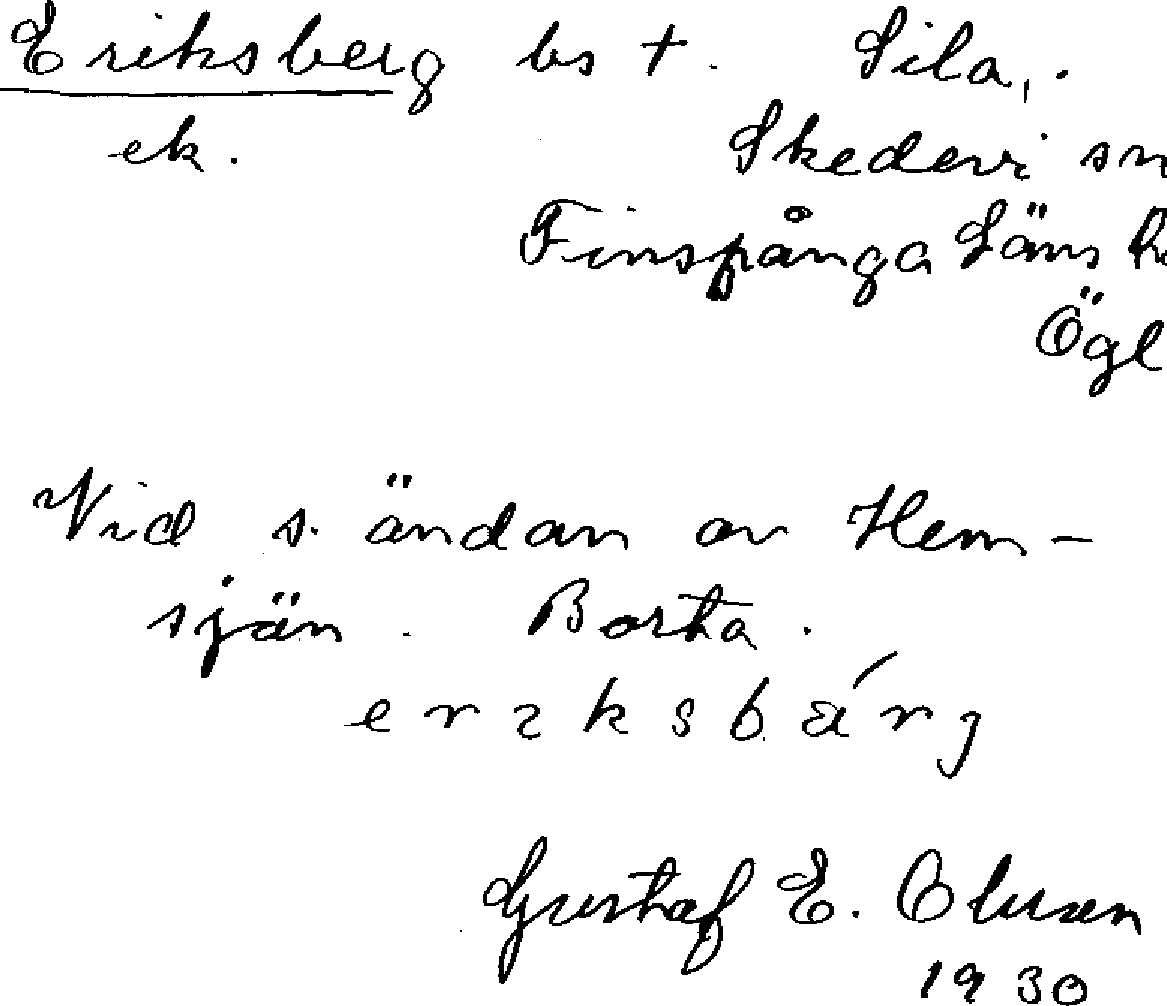 Eriksberg bs +. Sila,.
ek.
Skedevi sn
Finspånga Läns h
Ögl
Vid s. ändan av Hem-
sjön. Borta.
erıksbárj
Gustaf E. Olsson
1930